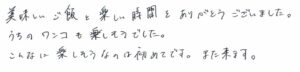 美味しいご飯と楽しい時間をありがとうございました。
うちのワンコも楽しそうでした。
こんなに楽しそうなのは初めてです。また来ます。